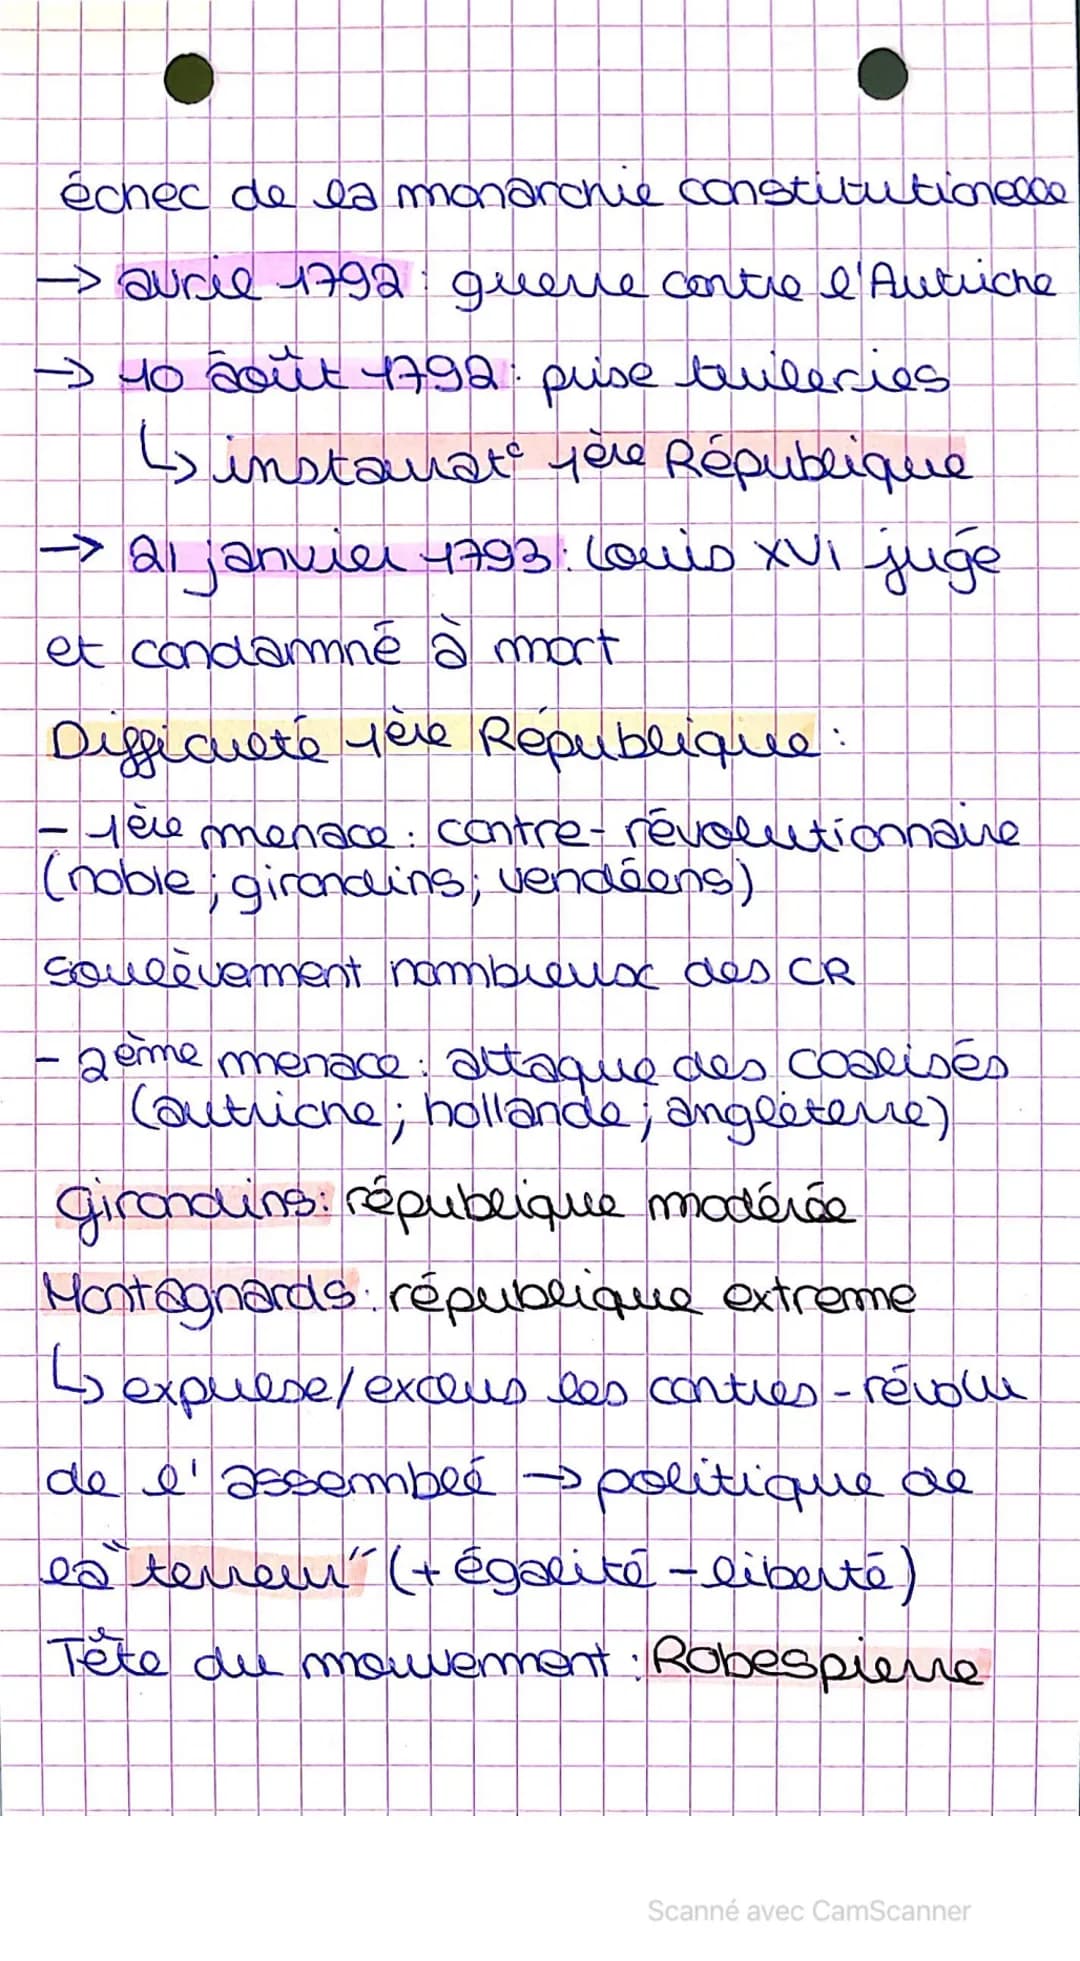 échec de la monarchie constitutionelle
→ avril 1792 : guerre contre l'Autriche
→ 10 août 1792 : prise tuileries
↳ instaurat° 1ère République
→ 21 janvier 1793 : Louis XVI jugé
et condamné à mort
Difficulté 1ère République :
- 1ère menace : contre-révolutionnaire
(noble ; girondins ; vendéens)
soulèvement nombreux des CR
- 2ème menace : attaque des coalisés
(autriche ; hollande ; angleterre)
Girondins : république modérée
Montagnards : république extreme
↳ expulse/exclus les contres-révolu
de l'assemblé → politique de
la "terreur" (+ égalité - liberté)
Tête du mouvement : Robespierre
Scanné avec CamScanner